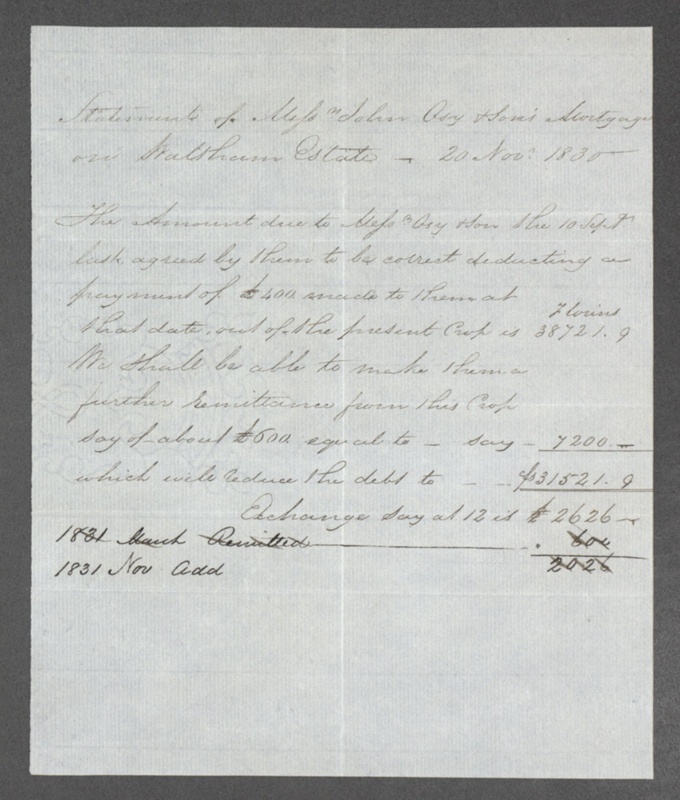 Statement of Mess rs John Osy & Son's Mortgage
on Waltham Estate – 20 Nov r 1830
The Amount due to Mess rs Osy & Son the 10 Sept r
last agreed by them to be correct deducting a
payment of £400 made to them at
that date, out of the present Crop is Florins 38721.9
We shall be able to make them a
further remittance from this Crop
say of about £600 equal to – say – 7200.–
which will reduce the debt to – – f 31521.9
Exchange say at 12 is £ 2626 –
1831 March Remitted – . 600
2026
1831 Nov Add